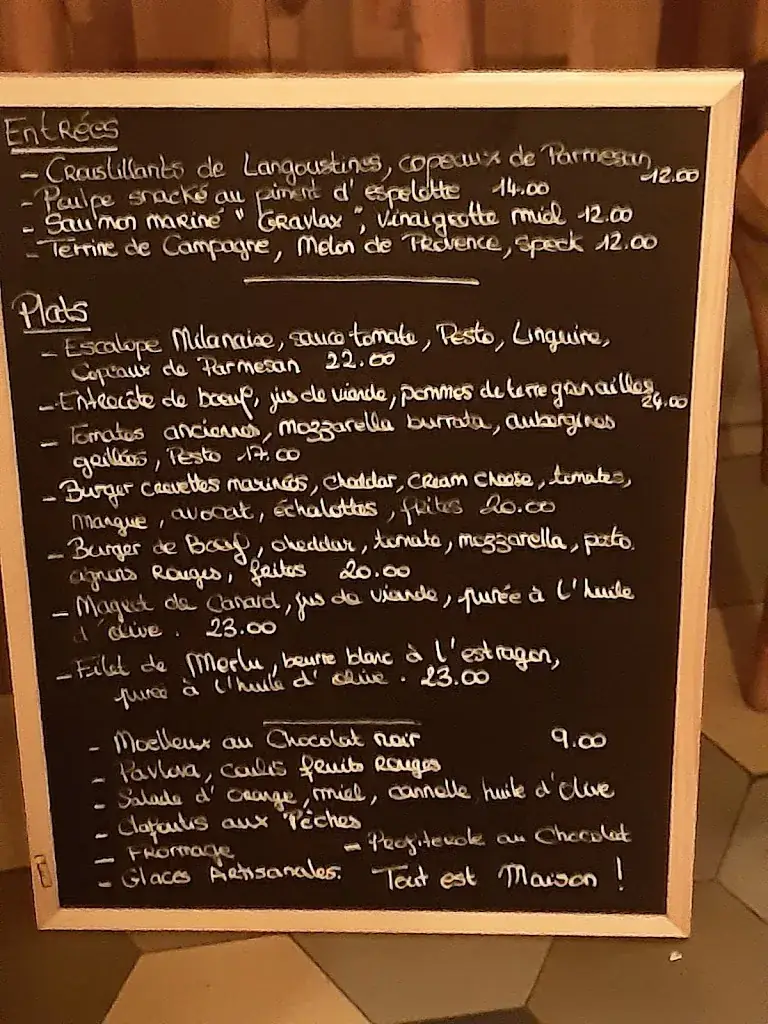 Entrées
- Croustillants de Langoustines, copeaux de Parmesan 12.00
- Poulpe snacké au piment d'espelette 14.00
- Saumon mariné "Gravlax", vinaigrette miel 12.00
- Terrine de Campagne, Melon de Provence, speck 12.00
Plats
- Escalope Milanaise, sauce tomate, Pesto, Linguine,
Copeaux de Parmesan 22.00
- Entrecôte de boeuf, jus de viande, pommes de terre grenailles 24.00
- Tomates anciennes, mozzarella burrata, aubergines
grillées, Pesto 17.00
- Burger crevettes marinées, cheddar, cream cheese, tomates,
Mangue, avocat, échalottes, frites 20.00
- Burger de Boeuf, cheddar, tomate, mozzarella, pesto,
oignons Rouges, frites 20.00
- Magret de Canard, jus de viande, purée à l'huile
d'olive. 23.00
- Filet de Merlu, beurre blanc à l'estragon,
purée à l'huile d'olive. 23.00
- Moelleux au Chocolat noir 9.00
- Pavlova, coulis fruits Rouges
- Salade d'Orange, miel, cannelle huile d'Olive
- Clafoutis aux Pêches
- Fromage - Profiterole au Chocolat
- Glaces Artisanales. Tout est Maison !